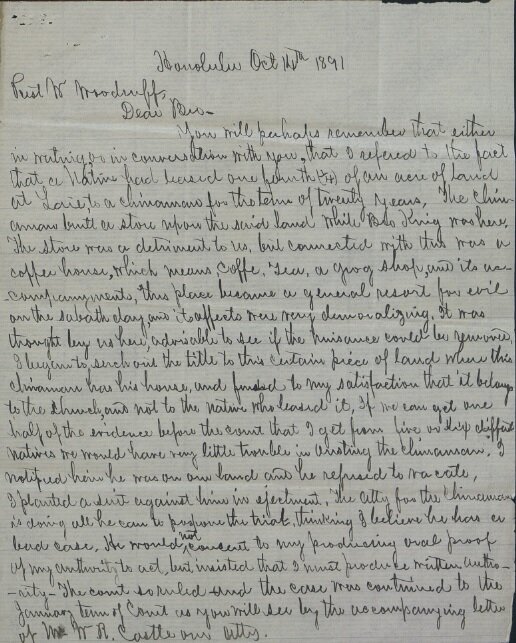 Honolulu Oct 14th 1891
Prest W Woodruff,
Dear Bro-
You will perhaps remember that either
in writing, or in conversation with you, that I refered to the fact
that a Native had leased one fourth (¼) of an acre of land
at Laie to a chinamans for the term of twenty years, The Chin-
aman built a store upon the said land while Bro King was here.
The store was a detriment to us, but connected with this was a
coffee house, which means, Coffe, Tea, a grog shop, and its ac-
companyments, This place became a general resort for evil
on the sabath day, and it affects were very demoralizing, It was
thought by us here, advisable to see if the nuisance could be removed,
I began to serch out the title to this certain piece of land where this
chinaman has his house, and found to my satisfaction that it belongs
to the church, and not to the native who leased it, If we can get one
half of the evidence before the court that I get from five or six different
natives we would have very little trouble in ousting the chinaman, I
notified him he was on our land and he refused to vacate,
I planted a suit against him in ejectment, The atty for the chinaman
is doing all he can to pospone the trial, thinking I believe he has a
bad case, He would not concent to my producing oral proof
of my authority to act, but insisted that I must produce written autho-
-rity- The court so ruled and the case was continued to the
January term of Court as you will see by the accompanying letter
of Mr W. R. Castle our atty.